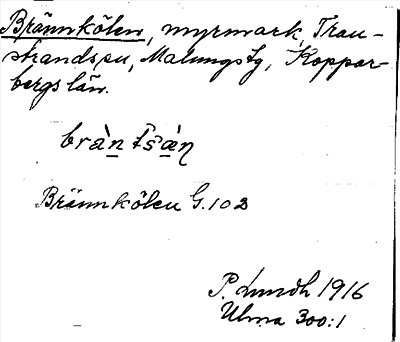 Brännkölen, myrmark, Tran-
strands sn, Malungs tg, Koppar-
bergs län.
brà̱n t̂sæ̱̀ŋ
Brännkölen G. 102
P. Lundh 1916
Ulma 300:1